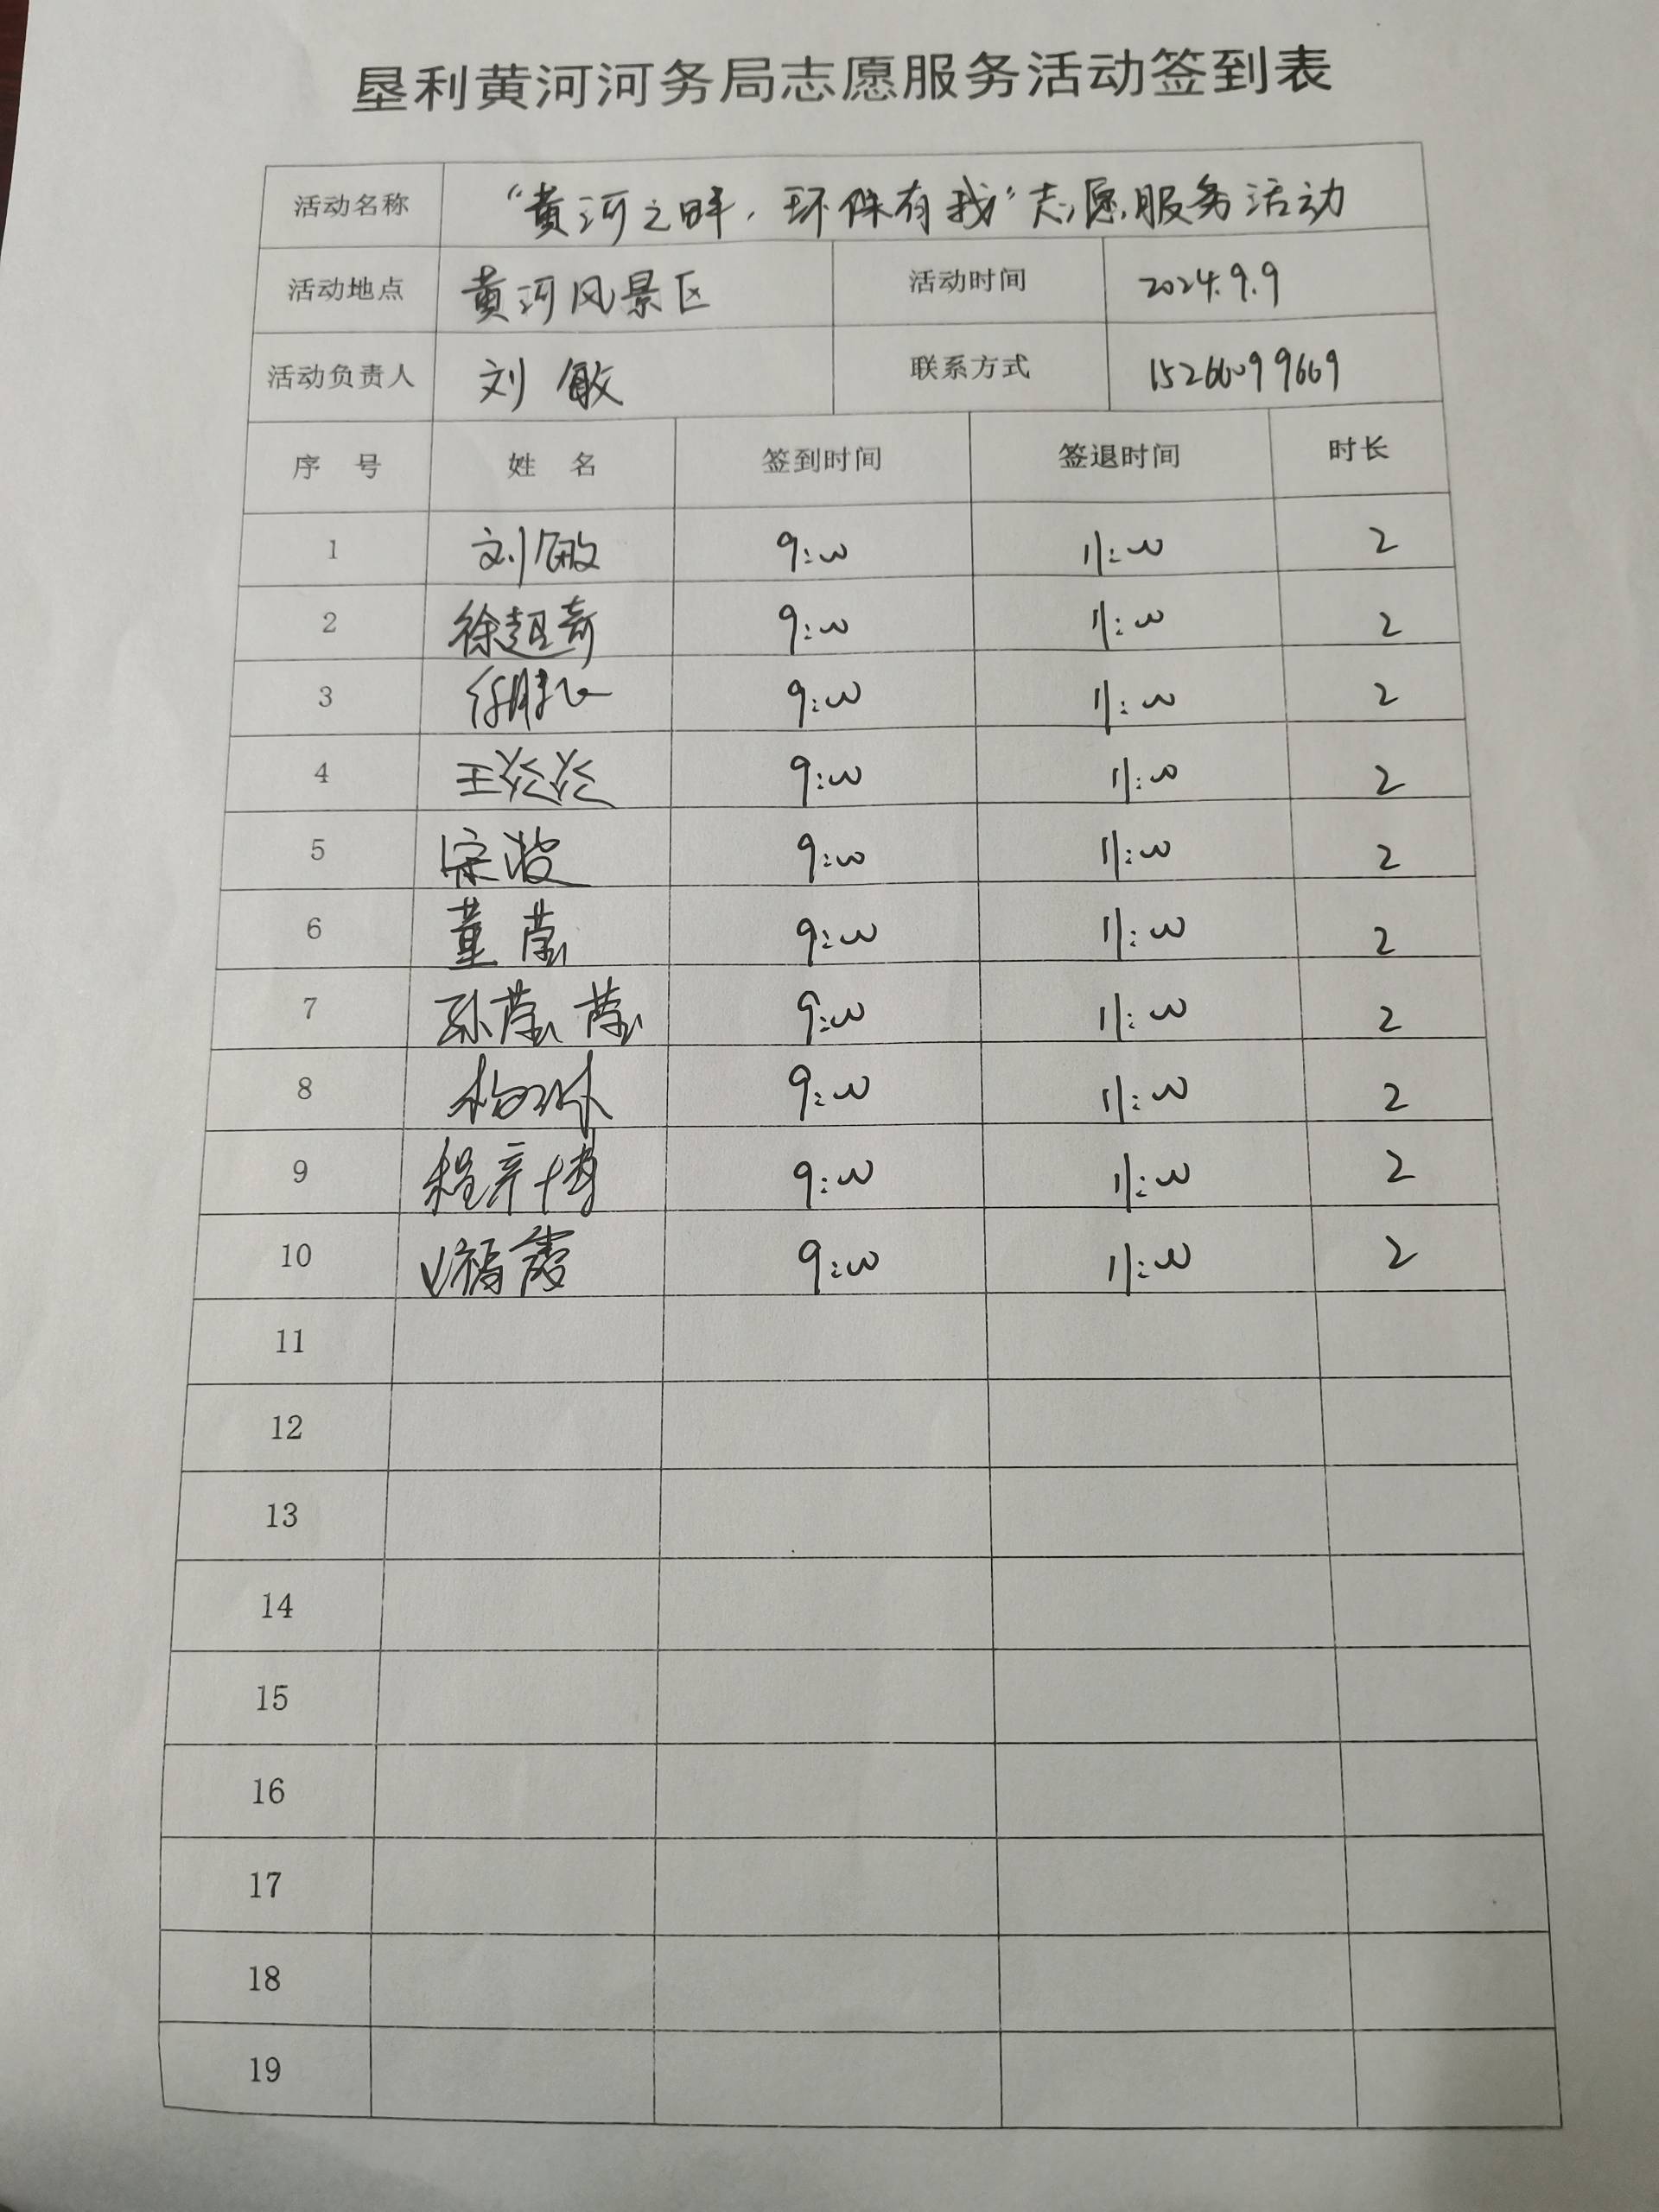 垦利黄河河务局志愿服务活动签到表
活动名称 “黄河之畔，环保有我”志愿服务活动
活动地点 黄河风景区 活动时间 2024.9.9
活动负责人 刘敏 联系方式 15266099669
序 号 姓 名 签到时间 签退时间 时长
1 刘敏 9:00 11:00 2
2 徐超奇 9:00 11:00 2
3 9:00 11:00 2
4 王 9:00 11:00 2
5 宋波 9:00 11:00 2
6 董莹 9:00 11:00 2
7 孙莹莹 9:00 11:00 2
8 9:00 11:00 2
9 程辛博 9:00 11:00 2
10 9:00 11:00 2
11
12
13
14
15
16
17
18
19